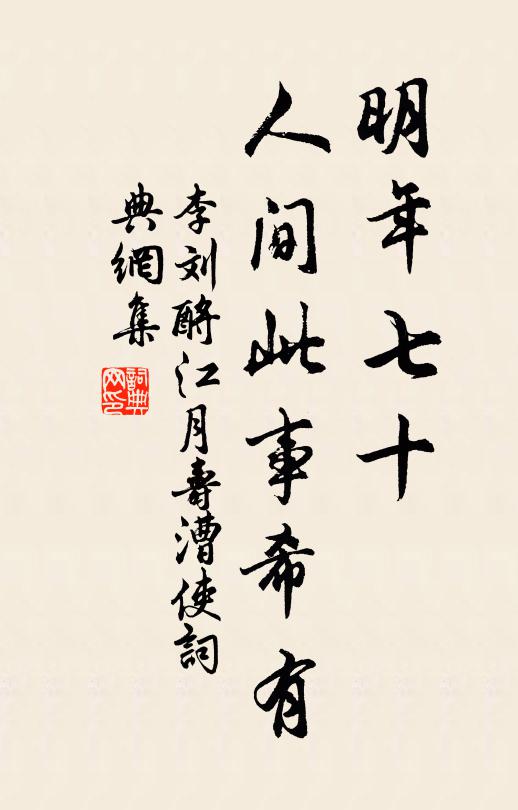 明年七十
人间此事希有
李刘酹江月壽漕使詞
典網集
詞典
网印